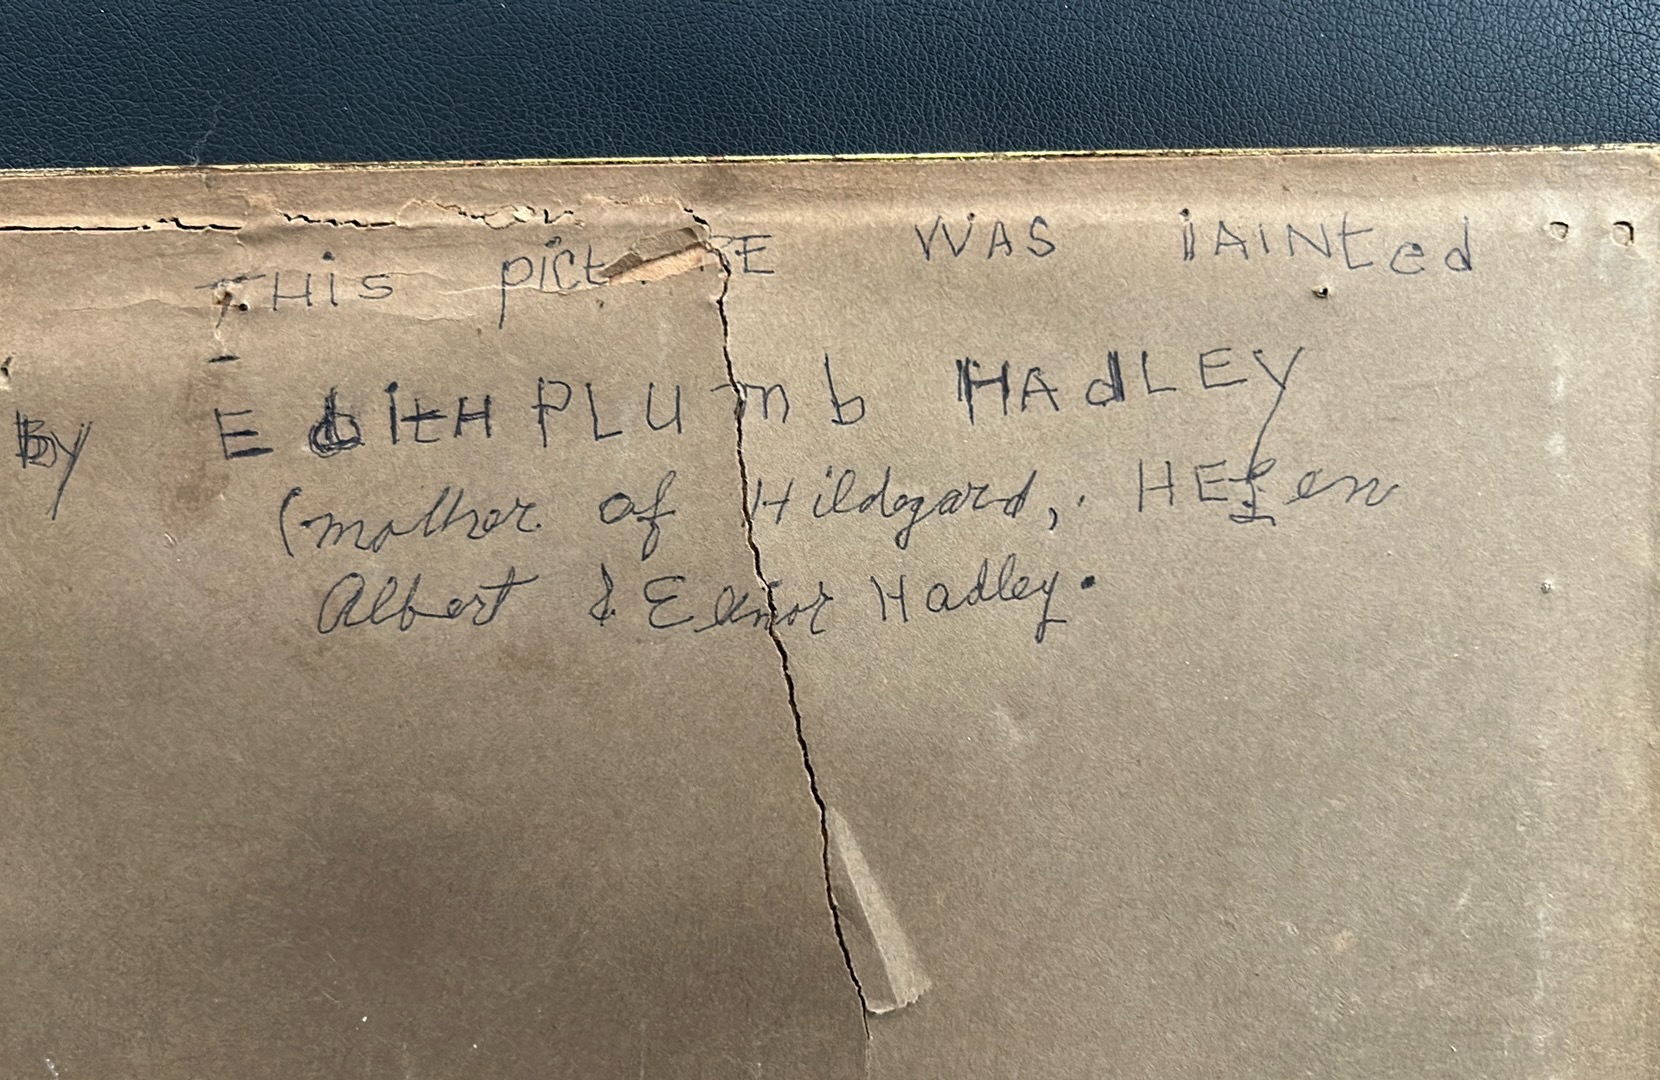 THis pictRE WAS iAINted
By EdITH PLUmb HAdLEY
(mother of Hildegard, HELen
Albert & Elinor Hadley.